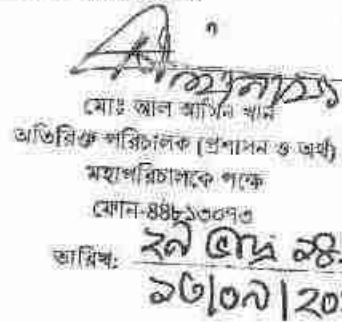 মোঃ আল আমিন খান
অতিরিক্ত পরিচালক (প্রশাসন ও অর্থ)
মহাপরিচালকে পক্ষে
ফোন-৪৪৮১৩০৭৩
তারিখ: ২৯ ভাদ্র
১৩|০৯|২০